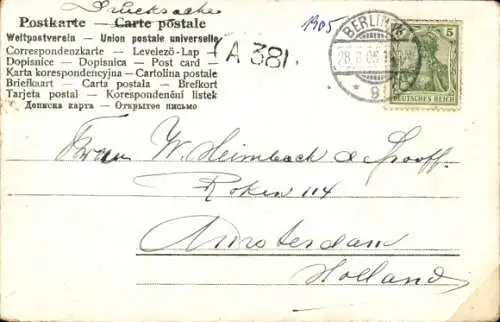 Drucksache
Postkarte — Carte postale
Weltpostverein — Union postale universelle
Correspondenzkarte — Levelező-Lap
Dopisnice — Dopisnica — Post card —
Karta korespondencyjna — Cartolina postale
Briefkaart — Carta postala — Brefkort
Tarjeta postal — Korespondenční listek
Дописна карта — Открытое письмо
A 381.
1905
BERLIN
28.8.05
9
5
DEUTSCHES REICH
W. Heimbach & Grooff.
Rokin 114
Amsterdam
Holland